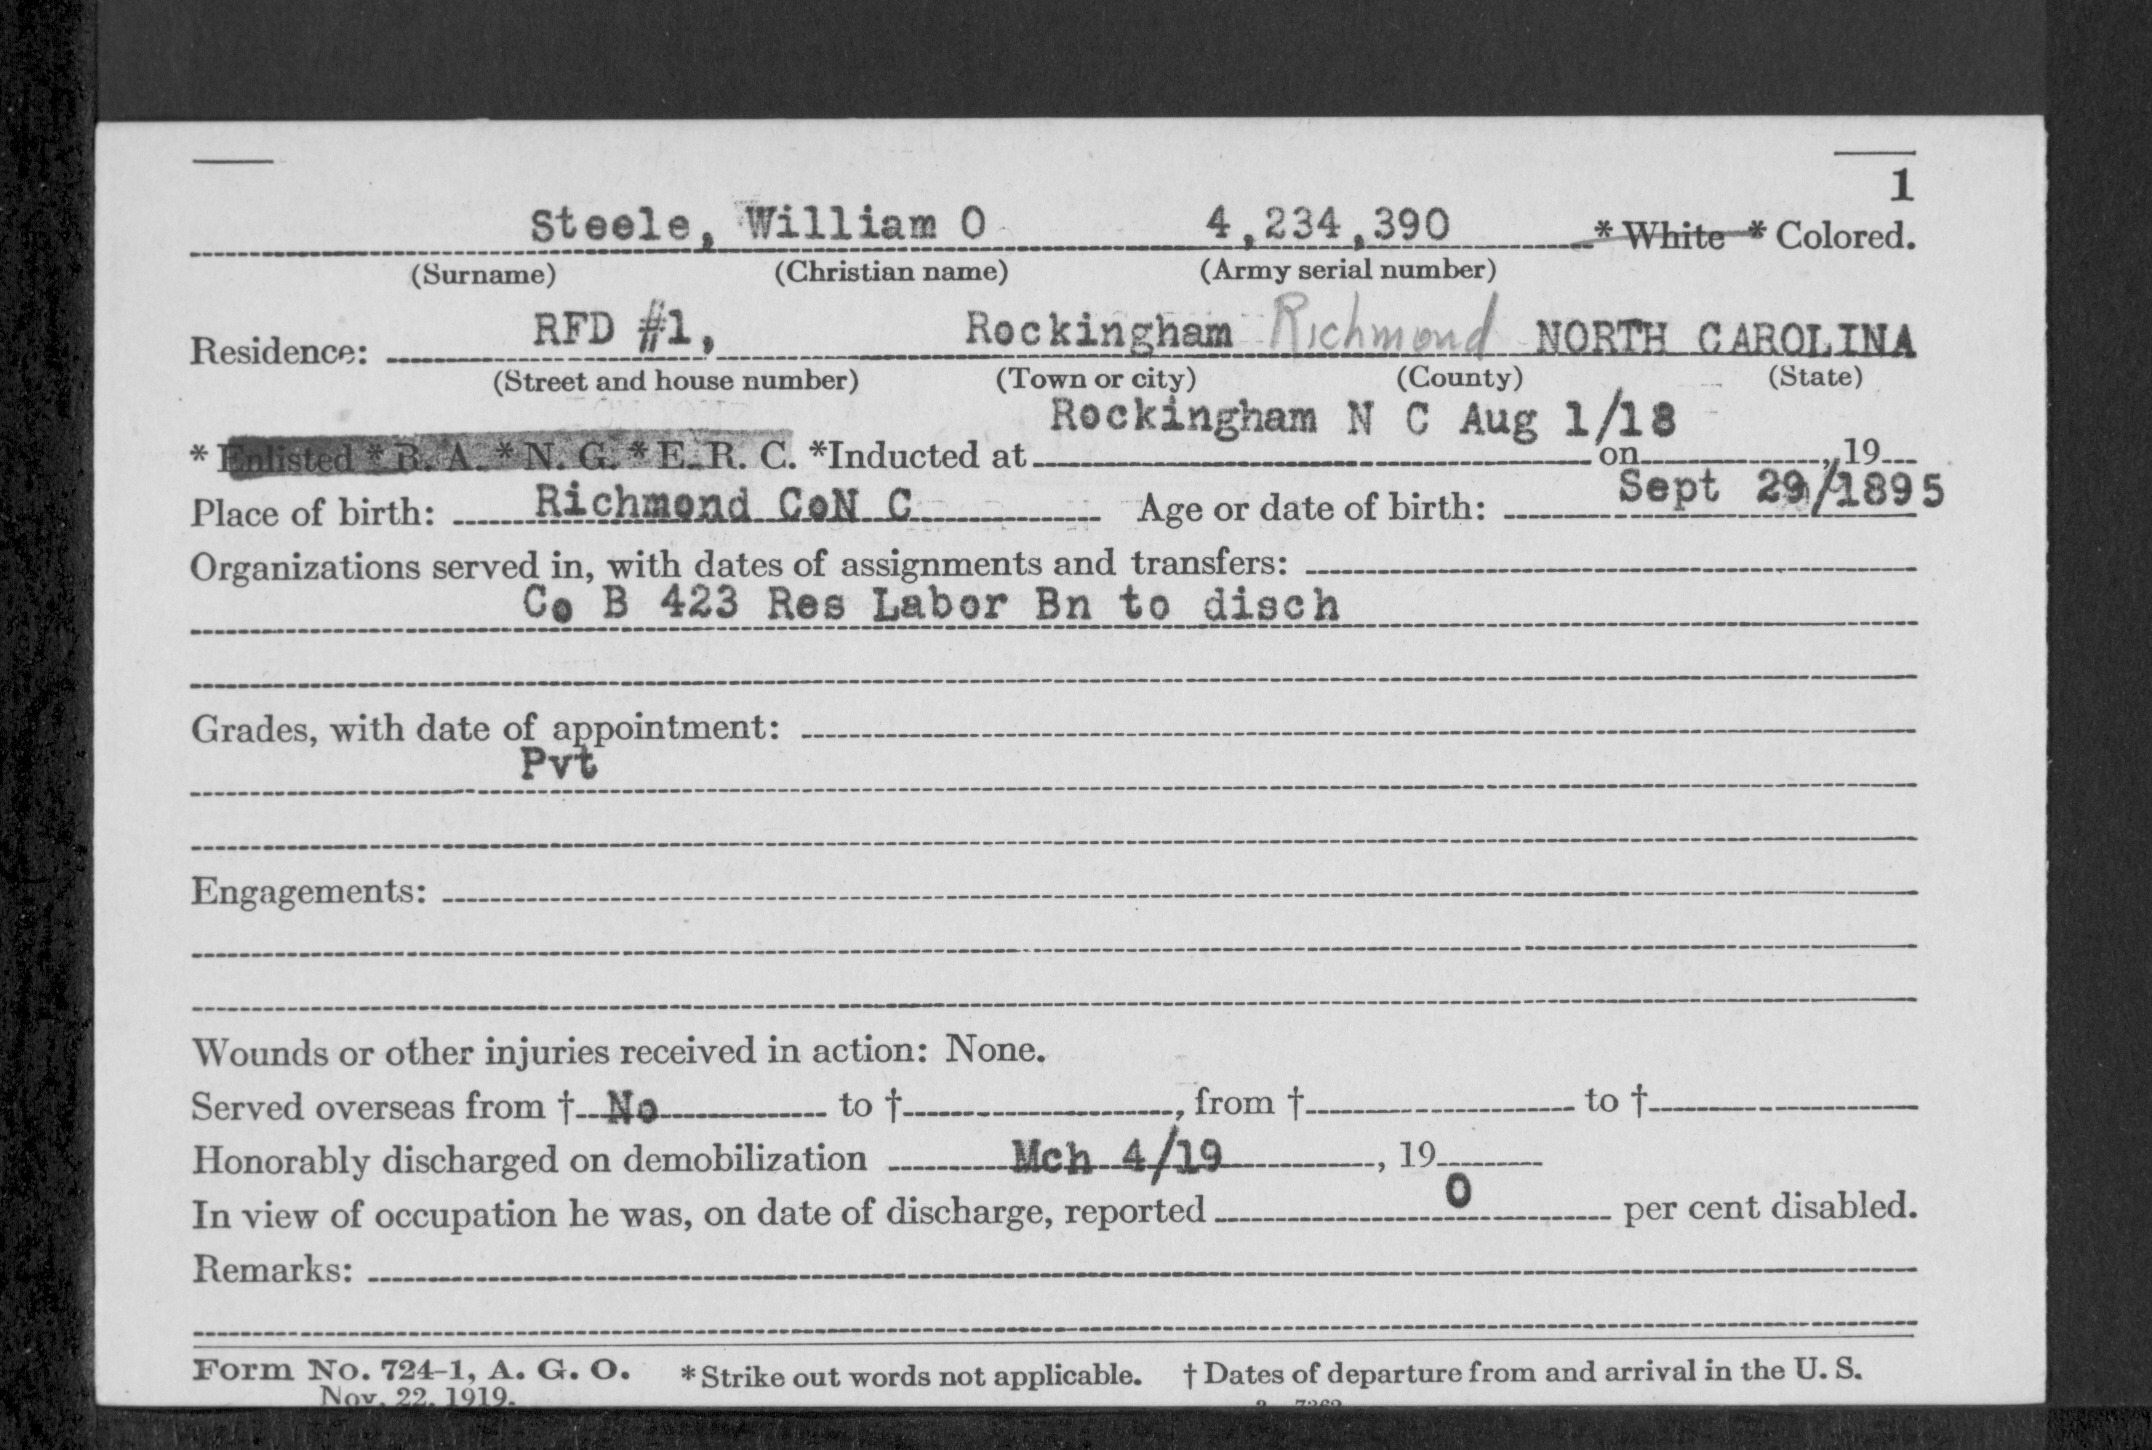 1
Steele, William O 4,234,390 * White * Colored.
(Surname) (Christian name) (Army serial number)
Residence: RFD #1, Rockingham Richmond NORTH CAROLINA
(Street and house number) (Town or city) (County) (State)
Rockingham N C Aug 1/18
* Enlisted * R. A. * N. G. * E. R. C. *Inducted at on , 19
Place of birth: Richmond CoN C Age or date of birth: Sept 29/1895
Organizations served in, with dates of assignments and transfers:
Co B 423 Res Labor Bn to disch
Grades, with date of appointment:
Pvt
Engagements:
Wounds or other injuries received in action: None.
Served overseas from † No to † , from † to †
Honorably discharged on demobilization Mch 4/19 , 19
In view of occupation he was, on date of discharge, reported 0 per cent disabled.
Remarks:
Form No. 724-1, A. G. O. * Strike out words not applicable. † Dates of departure from and arrival in the U. S.
Nov. 22, 1919.